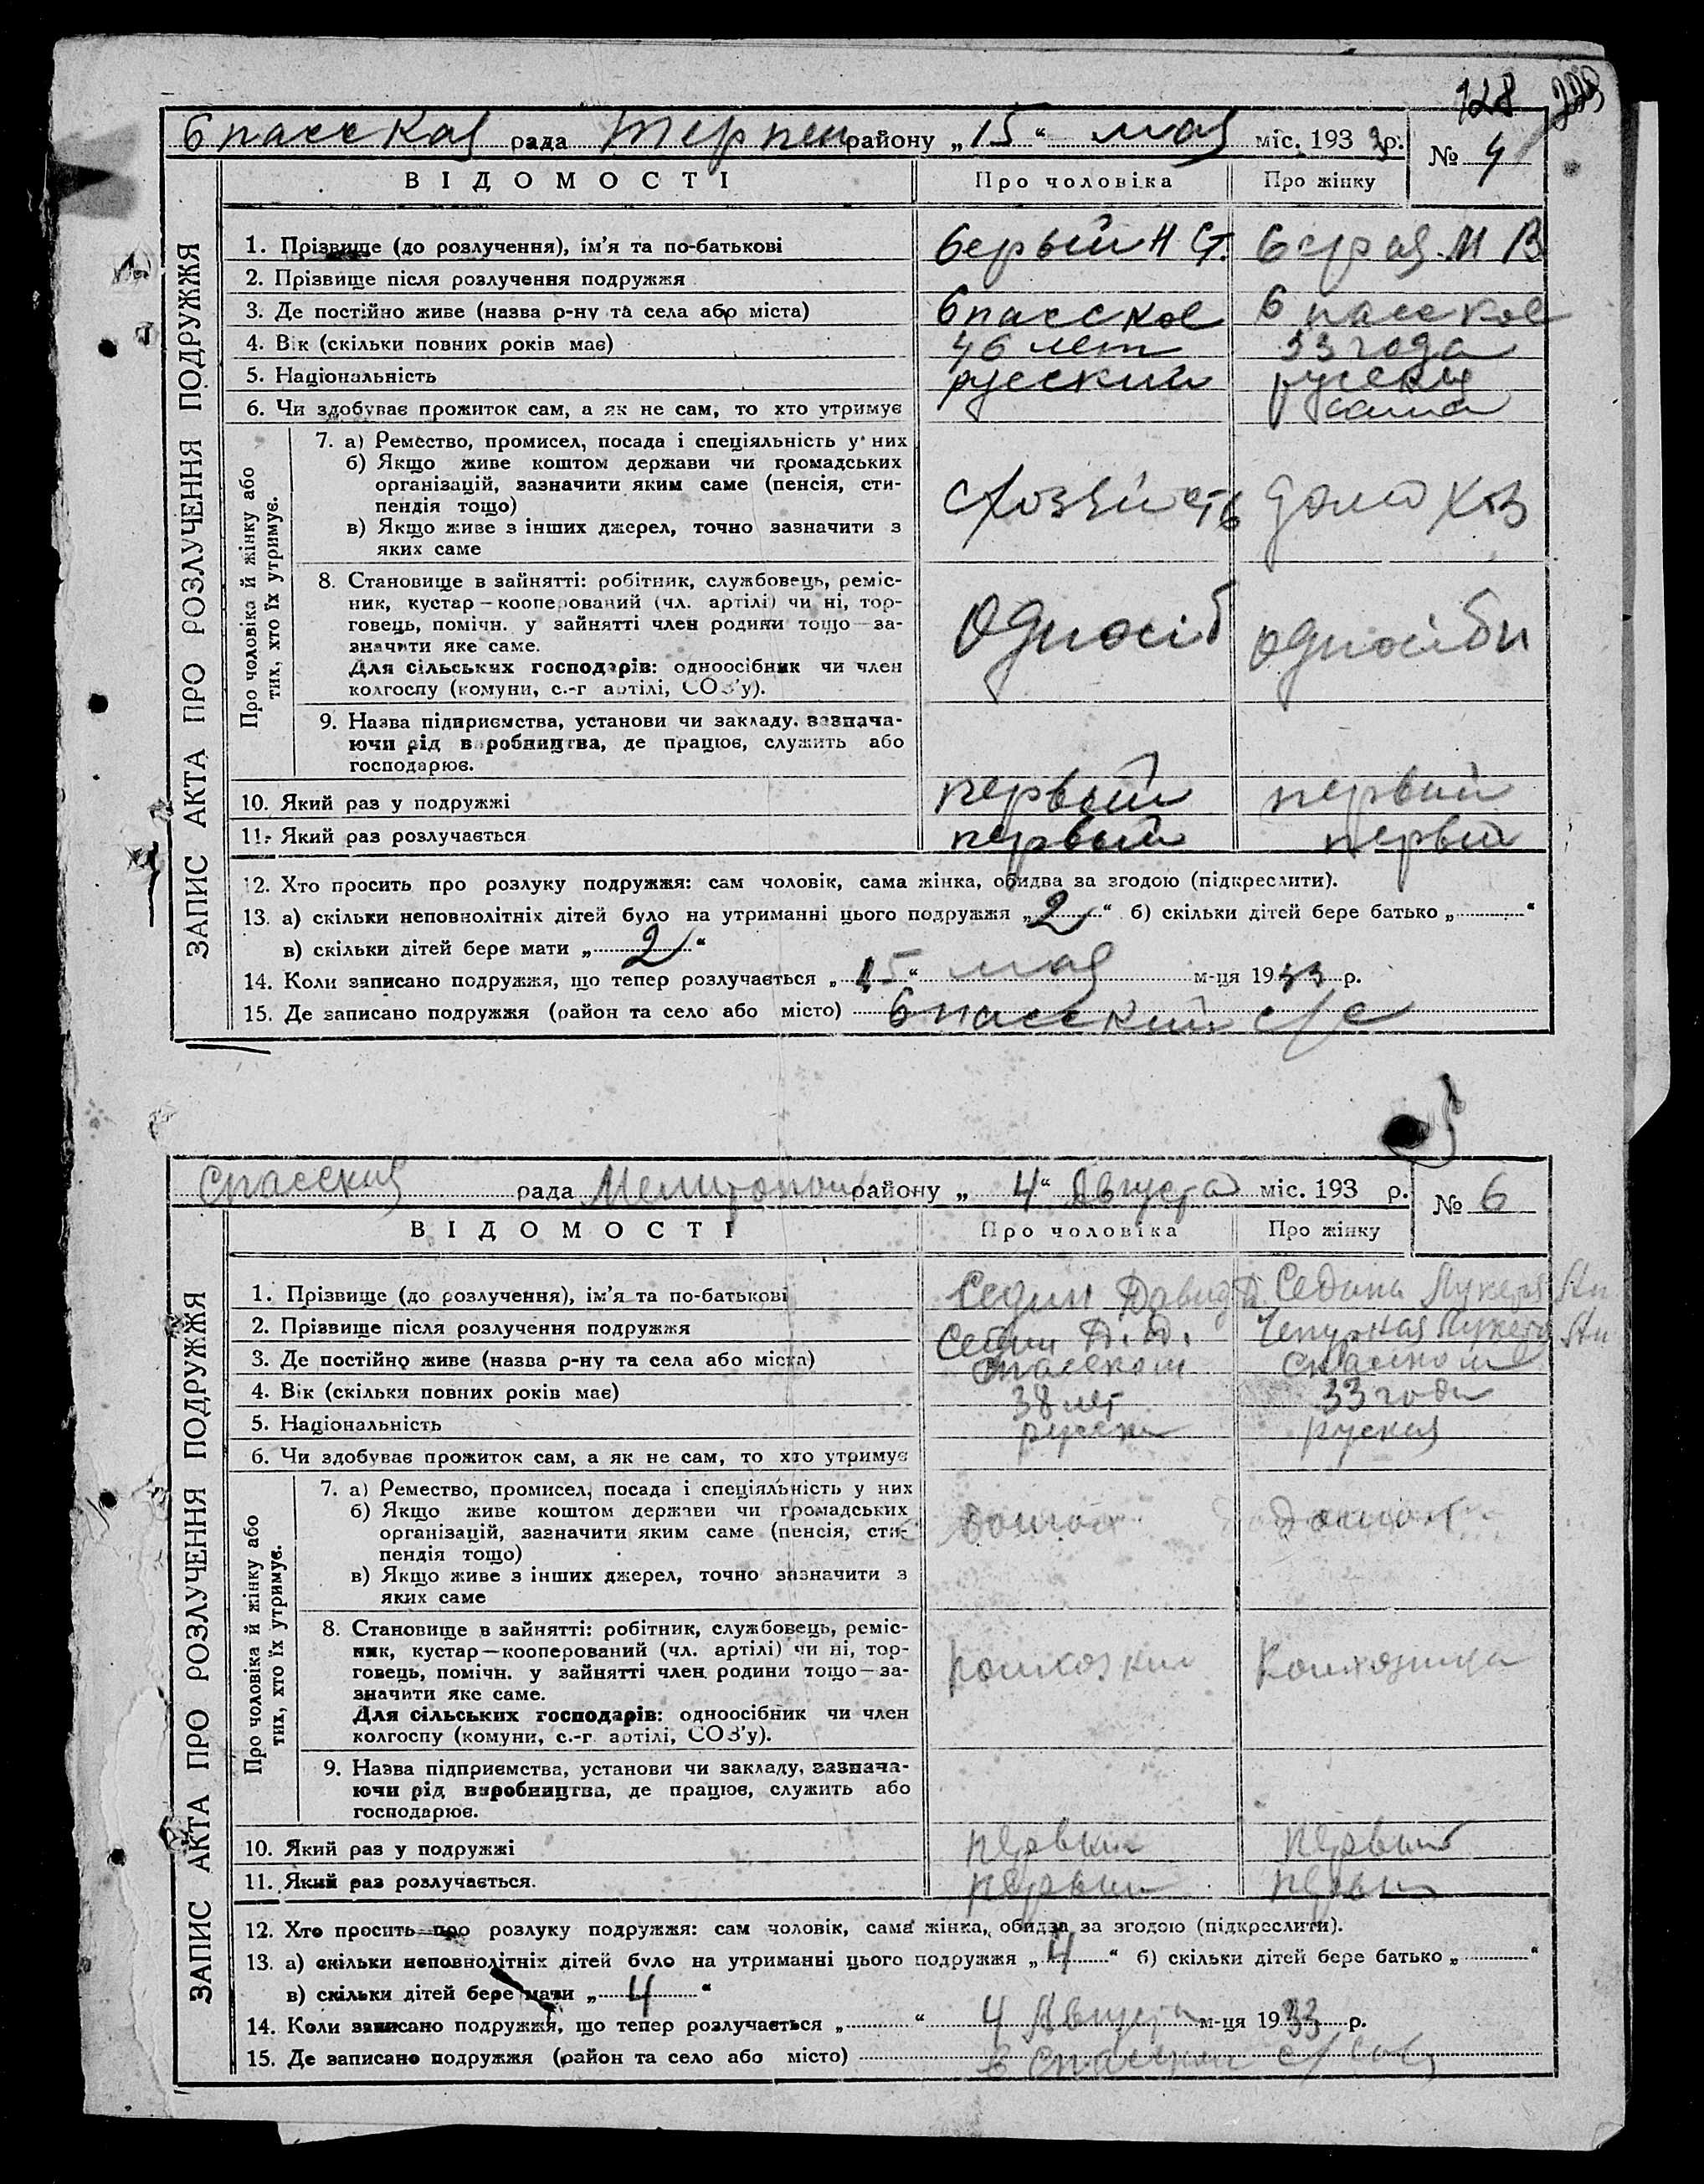 128
Спасская рада Терпен району „15“ мая міс. 1933 р.
№ 4
ЗАПИС АКТА ПРО РОЗЛУЧЕННЯ ПОДРУЖЖЯ
ВІДОМОСТІ Про чоловіка Про жінку
1. Прізвище (до розлучення), ім'я та по-батькові Серый Н С. Серая М В
2. Прізвище після розлучення подружжя
3. Де постійно живе (назва р-ну та села або міста) Спасское Спасское
4. Вік (скільки повних років має) 46 лет 33 года
5. Національність русский
6. Чи здобуває прожиток сам, а як не сам, то хто утримує сама
Про чоловіка й жінку або тих, хто їх утримує.
7. а) Ремество, промисел, посада і спеціяльність у них
б) Якщо живе коштом держави чи громадських
організацій, зазначити яким саме (пенсія, сти-
пендія тощо)
в) Якщо живе з інших джерел, точно зазначити з
яких саме
домохоз
8. Становище в зайнятті: робітник, службовець, реміс-
ник, кустар—кооперований (чл. артілі) чи ні, тор-
говець, помічн. у зайнятті член родини тощо—за-
значити яке саме.
Для сільських господарів: одноосібник чи член
колгоспу (комуни, с.-г артілі, СОЗ'у).
Односіб односібн
9. Назва підприємства, установи чи закладу, зазнача-
ючи рід виробництва, де працює, служить або
господарює.
10. Який раз у подружжі первый первый
11. Який раз розлучається первый первый
12. Хто просить про розлуку подружжя: сам чоловік, сама жінка, обидва за згодою (підкреслити).
13. а) скільки неповнолітніх дітей було на утриманні цього подружжя „2“ б) скільки дітей бере батько „ “
в) скільки дітей бере мати „2“
14. Коли записано подружжя, що тепер розлучається „15“ мая м-ця 1933 р.
15. Де записано подружжя (район та село або місто) Спасский с/с
Спасская рада Мелитополь району „4“ Августа міс. 193 р.
№ 6
ЗАПИС АКТА ПРО РОЗЛУЧЕННЯ ПОДРУЖЖЯ
ВІДОМОСТІ Про чоловіка Про жінку
1. Прізвище (до розлучення), ім'я та по-батькові Седин Давид Д. Седина Лукерья Ан
2. Прізвище після розлучення подружжя Седин Д. Д. Чепурная Лукерья Ан
3. Де постійно живе (назва р-ну та села або міста) Спаском Спаском
4. Вік (скільки повних років має) 38 лет 33 года
5. Національність руская
6. Чи здобуває прожиток сам, а як не сам, то хто утримує
Про чоловіка й жінку або тих, хто їх утримує.
7. а) Ремество, промисел, посада і спеціяльність у них
б) Якщо живе коштом держави чи громадських
організацій, зазначити яким саме (пенсія, сти-
пендія тощо)
в) Якщо живе з інших джерел, точно зазначити з
яких саме
8. Становище в зайнятті: робітник, службовець, реміс-
ник, кустар—кооперований (чл. артілі) чи ні, тор-
говець, помічн. у зайнятті член родини тощо—за-
значити яке саме.
Для сільських господарів: одноосібник чи член
колгоспу (комуни, с.-г артілі, СОЗ'у).
9. Назва підприємства, установи чи закладу, зазнача-
ючи рід виробництва, де працює, служить або
господарює.
10. Який раз у подружжі первый первый
11. Який раз розлучається. первый первый
12. Хто просить про розлуку подружжя: сам чоловік, сама жінка, обидва за згодою (підкреслити).
13. а) скільки неповнолітніх дітей було на утриманні цього подружжя „4“ б) скільки дітей бере батько „ “
в) скільки дітей бере мати „4“
14. Коли записано подружжя, що тепер розлучається „ “ 4 Августа м-ця 1933 р.
15. Де записано подружжя (район та село або місто) в Спаском с/сов